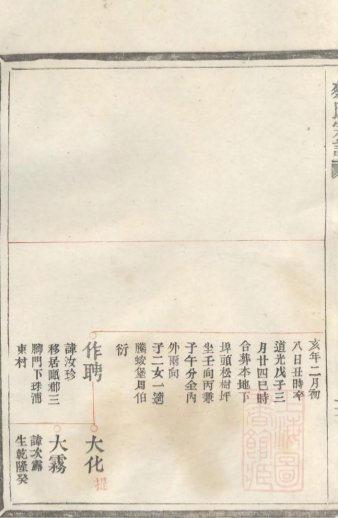 亥年二月初
八日丑時卒
道光戊子三
月廿四巳時
合葬本地下
埠頭松樹坪
坐壬向丙兼
子午分金內
外兩向
子二女一適
騰蛟堡周伯
衍
作聘
諱汝珍
移居甌郡三
牌門下珠浦
東村
大化
大霧
諱次露
生乾隆癸